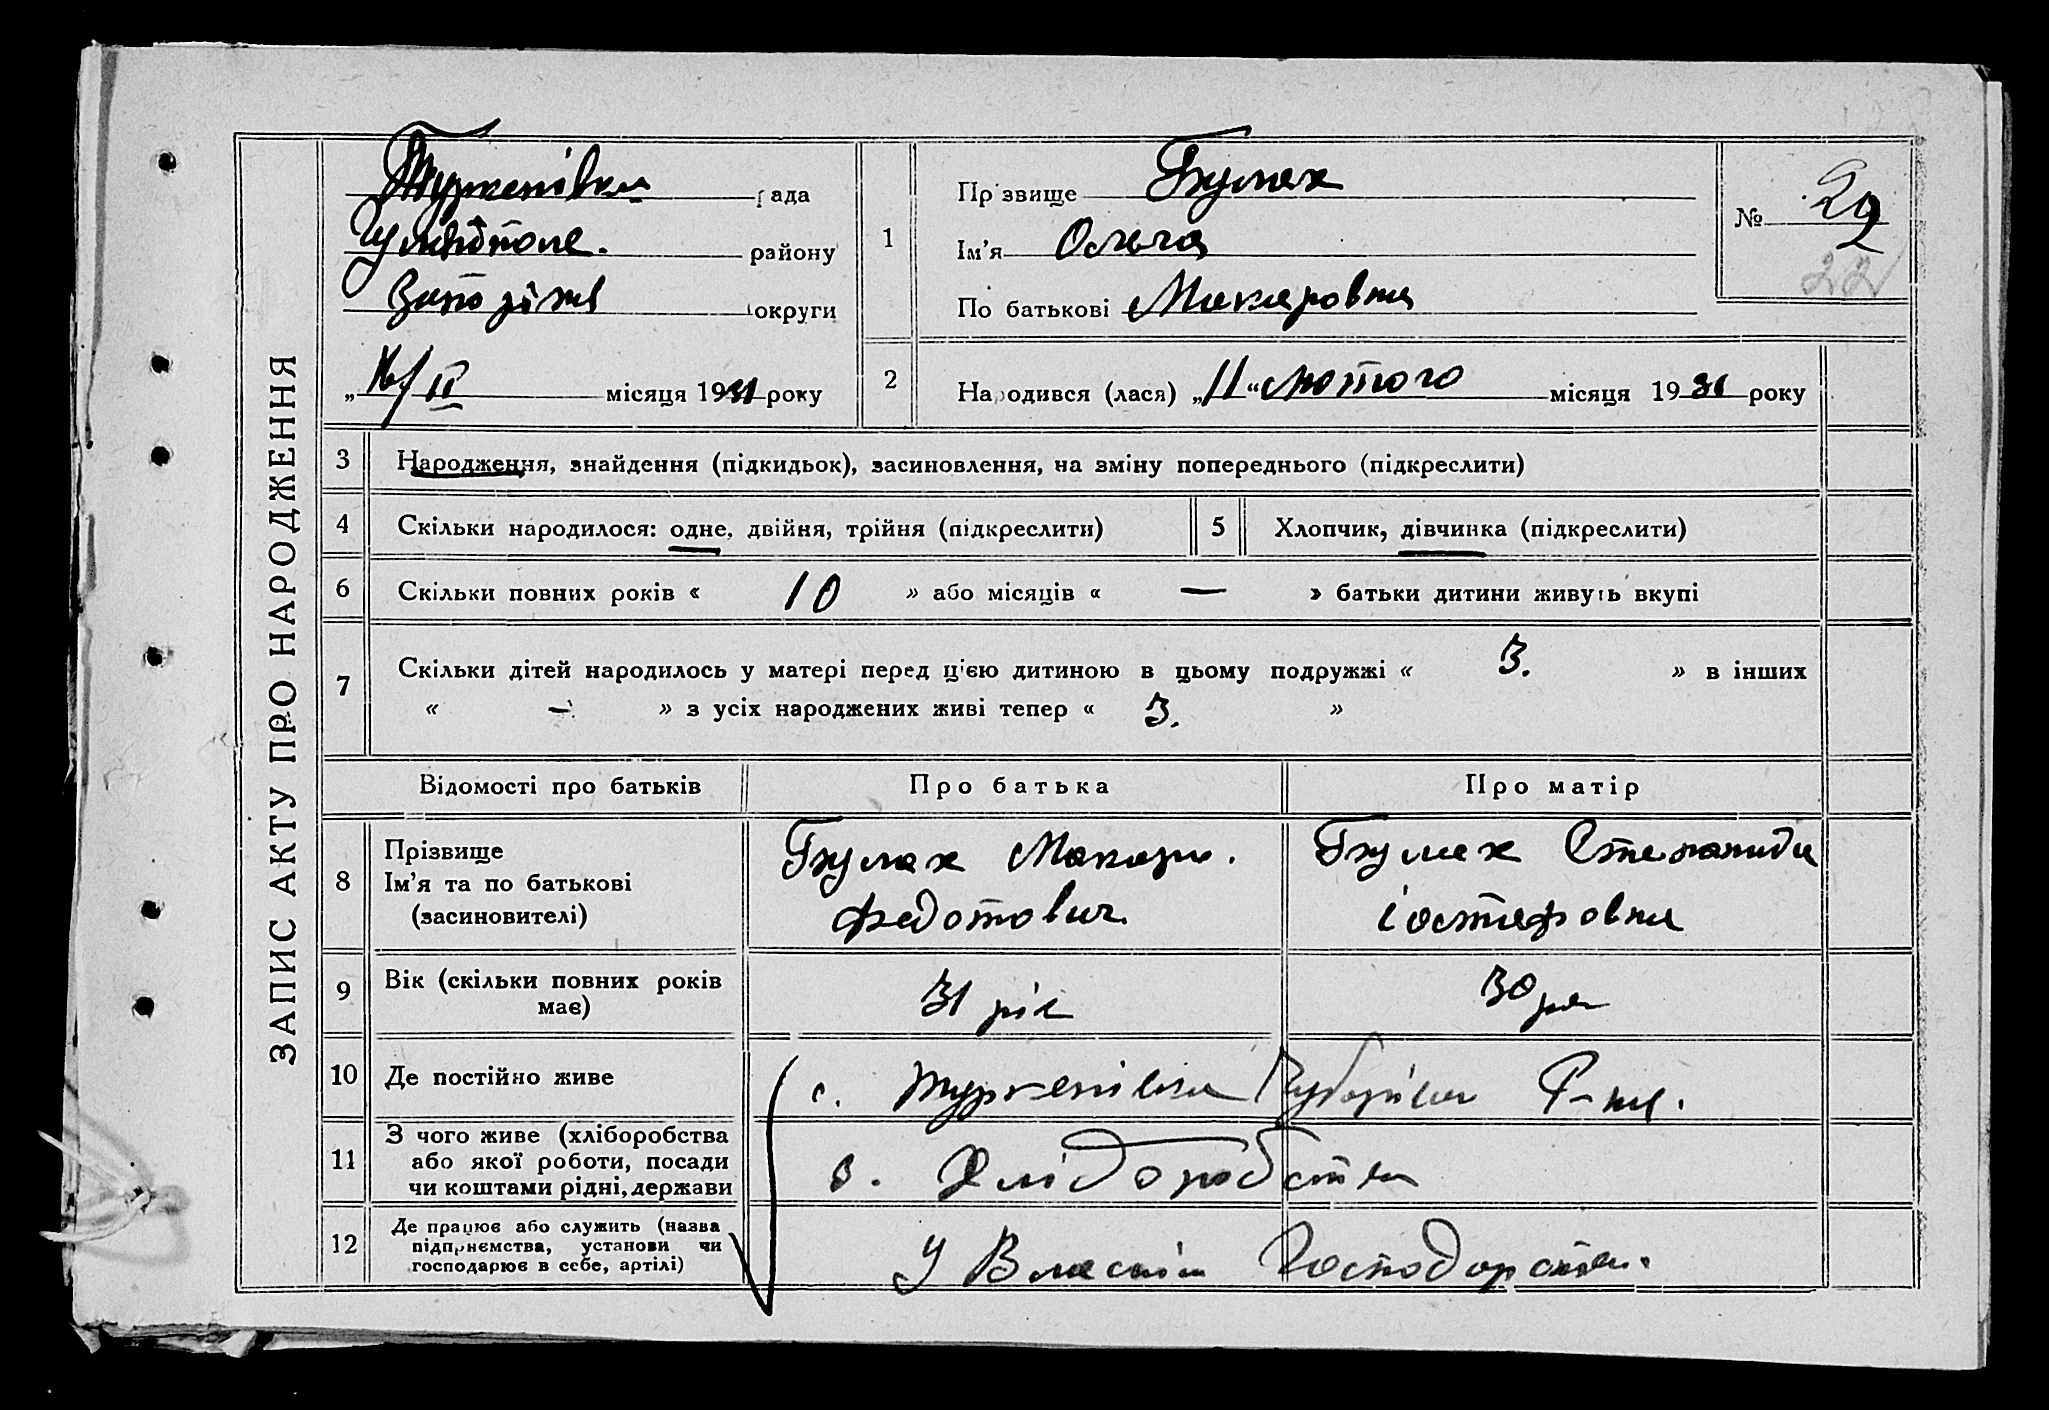 ЗАПИС АКТУ ПРО НАРОДЖЕННЯ
Туркенівка рада
Гуляйполе. району
Запоріжя округи
„16/ІІ місяця 1931 року
1
Прізвище Булах
Ім'я Ольга
По батькові Макаровна
№ 29
22
2
Народився (лася) „11“ лютого місяця 1931 року
3 Народження, знайдення (підкидьок), засиновлення, на зміну попереднього (підкреслити)
4 Скільки народилося: одне, двійня, трійня (підкреслити)
5 Хлопчик, дівчинка (підкреслити)
6 Скільки повних років « 10 » або місяців « — » батьки дитини живуть вкупі
7 Скільки дітей народилось у матері перед цією дитиною в цьому подружжі « 3. » в інших
« — » з усіх народжених живі тепер « 3. »
Відомості про батьків Про батька Про матір
8 Прізвище
Ім'я та по батькові
(засиновителі)
Булах Макар.
Федотович
Булах Степанида
Іостафовна
9 Вік (скільки повних років
має)
31 рік
30 рок
10 Де постійно живе
с. Туркенівка Р-на.
11 З чого живе (хліборобства
або якої роботи, посади
чи коштами рідні, держави
з. Хліборобства
12 Де працює або служить (назва
підприємства, установи чи
господарює в себе, артілі)
У Власнім Господарстві.